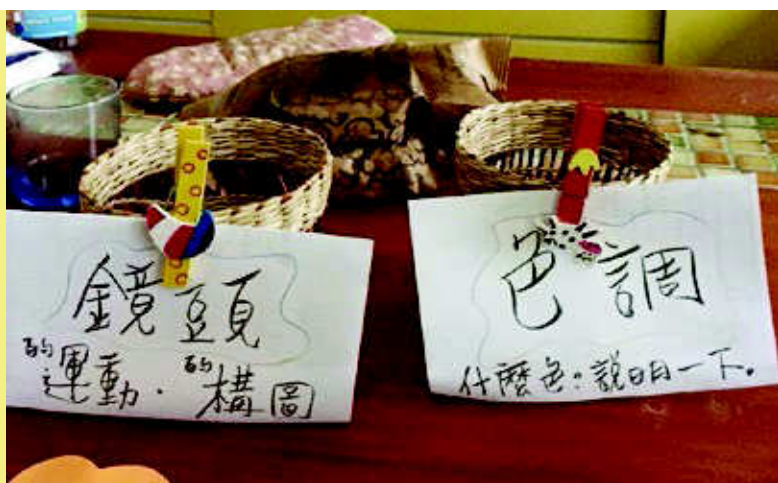 鏡頭
的運動.的構圖
色調
什麼色。說明一下。